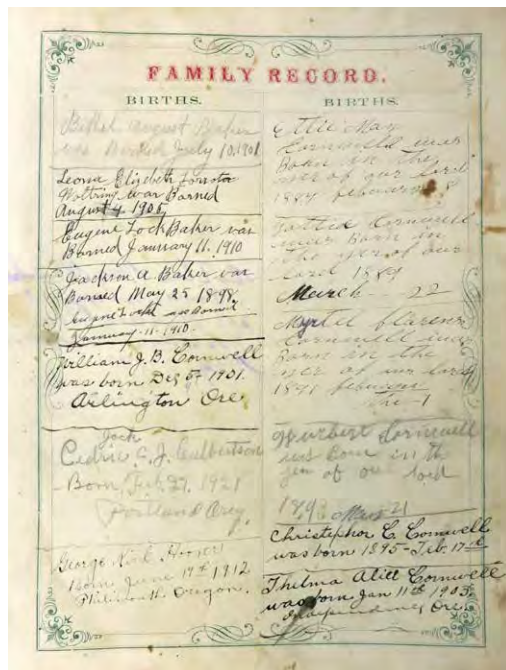 FAMILY RECORD.
BIRTHS.
August Baker
was July 10, 1901
Leona Elizabeth
was Borned
August 4, 1905
Eugene Lock Baker was
Borned January 11. 1910
Jackson A Baker was
Borned May 25 1898
January-11-1910
William J. B. Cornwell
was born Dec 5th 1901.
Arlington Ore
Jack
Cedric C. J. Culbertson
Born, Feb. 27, 1921
Portland Oreg
George
Born June 19th 1912
Oregon.
BIRTHS.
Ettie May
Cornwell was
Born in the
yer of our lord
1884 8
Cornwell
was Born in
the yer of our
lord 1889
March 22
Myrtel
Cornwell was
Born in the
yer of our lord
1891
the 1
Hurbert Cornwell
was born in the
of our lord
189 21
Christopher C. Cornwell
was born 1895 - Feb. 17th
Thelma Cornwell
was born Jan 11th 1903.
Ore.